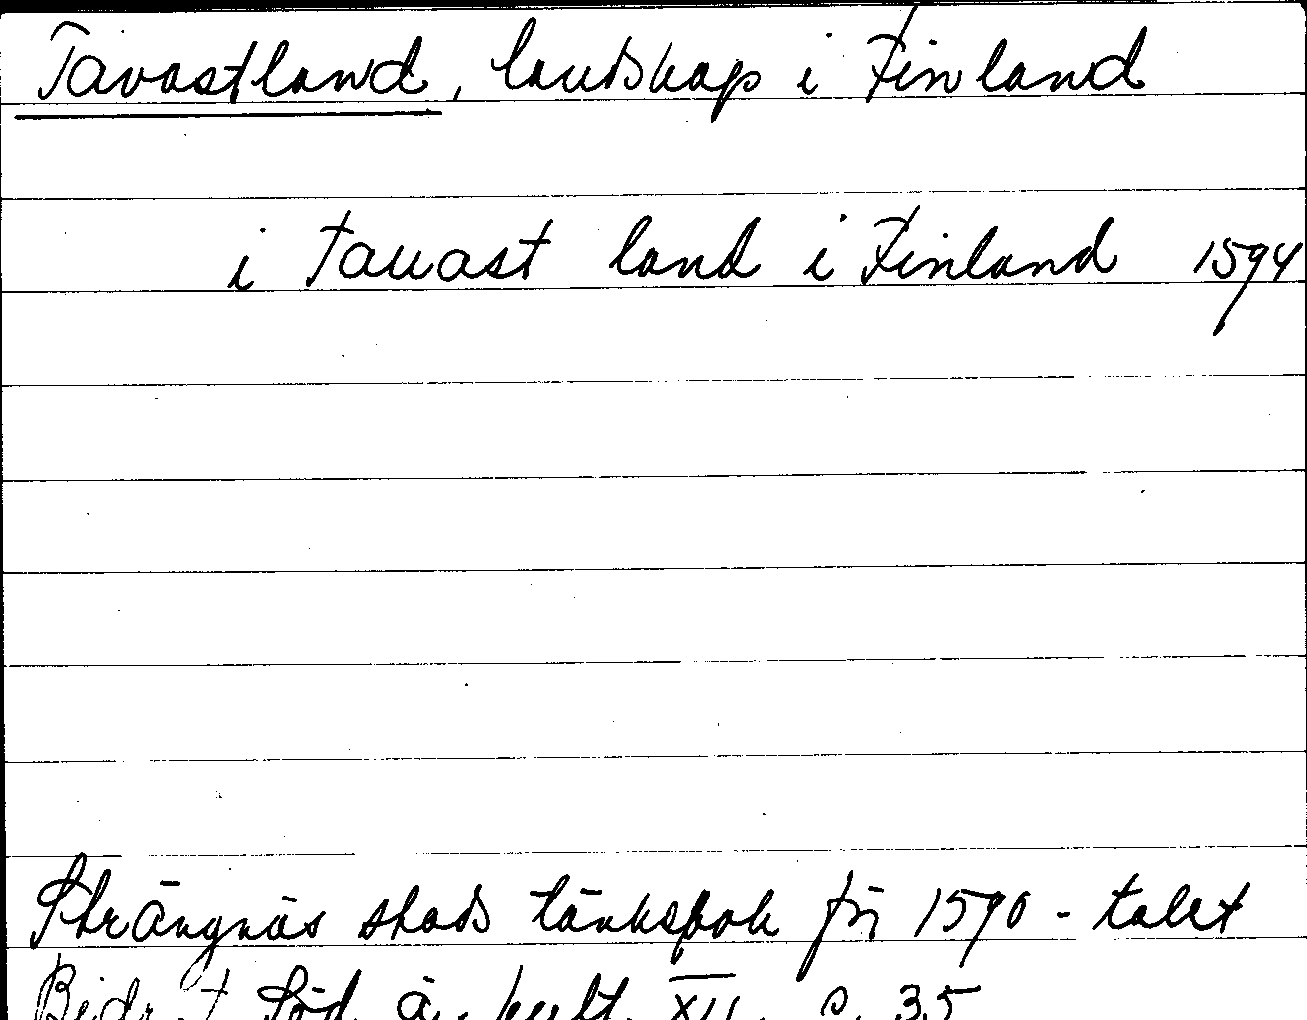 Tavastland, landskap i Finland
i Tauast land i Finland 1594
Strängnäs stads tänkebok för 1590-talet
Bidr. t. Söd. ä. kult. XII. s. 35